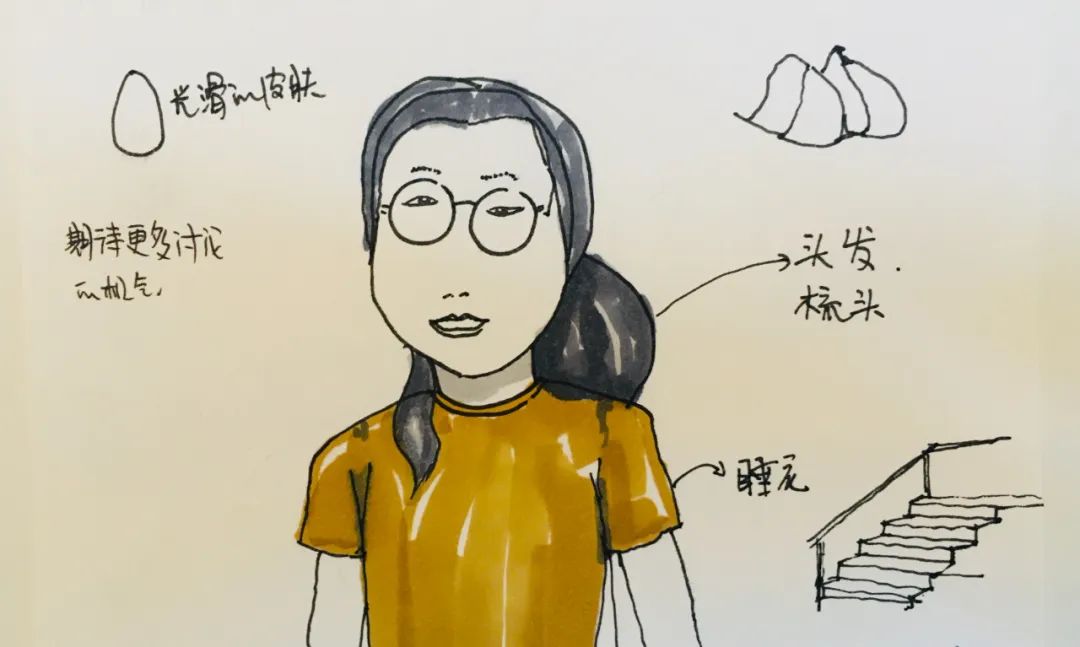 光滑的皮肤
期待更多讨论
的机气,
头发.
梳头
睡衣